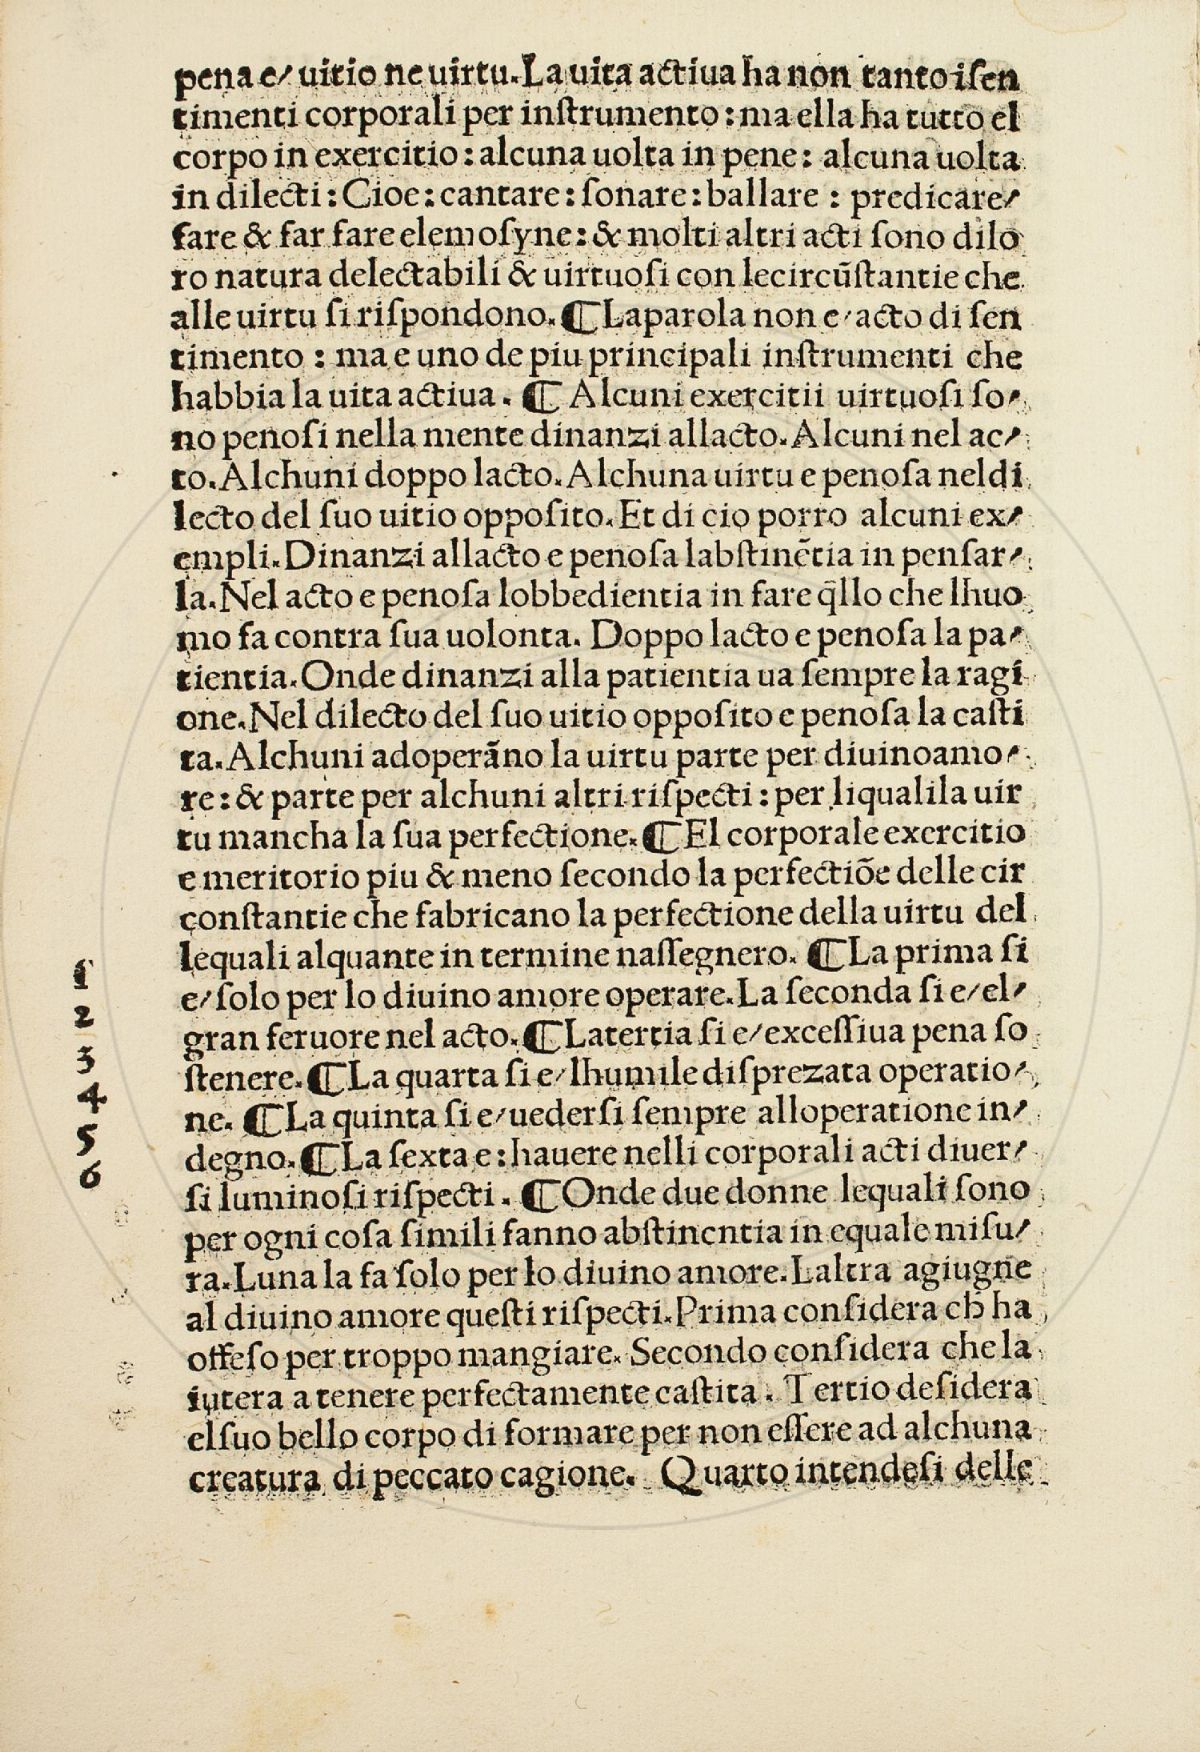 pena e/ uitio ne uirtu. La uita actiua ha non tanto i ſen
timenti corporali per inſtrumento: ma ella ha tutto el
corpo in exercitio: alcuna uolta in pene: alcuna uolta
in dilecti: Cioe: cantare: ſonare: ballare : predicare/
fare & far fare elemoſyne: & molti altri acti ſono di lo
ro natura delectabili & uirtuoſi con le circūſtantie che
alle uirtu ſi riſpondono. ¶ La parola non e/ acto di ſen
timento : ma e uno de piu principali inſtrumenti che
habbia la uita actiua. ¶ Alcuni exercitii uirtuoſi ſo/
no penoſi nella mente dinanzi allacto. Alcuni nel ac/
to. Alchuni doppo lacto. Alchuna uirtu e penoſa nel di
lecto del ſuo uitio oppoſito. Et di cio porro alcuni ex/
empli. Dinanzi allacto e penoſa labſtinētia in penſar/
la. Nel acto e penoſa lobbedientia in fare q̄llo che lhuo
mo fa contra ſua uolonta. Doppo lacto e penoſa la pa/
tientia. Onde dinanzi alla patientia ua ſempre la ragi
one. Nel dilecto del ſuo uitio oppoſito e penoſa la caſti
ta. Alchuni adoperāno la uirtu parte per diuino amo/
re: & parte per alchuni altri riſpecti: per li quali la uir
tu mancha la ſua perfectione. ¶ El corporale exercitio
e meritorio piu & meno ſecondo la perfectiōe delle cir
conſtantie che fabricano la perfectione della uirtu del
lequali alquante in termine naſſegnero. ¶ La prima ſi
e/ ſolo per lo diuino amore operare. La ſeconda ſi e/ el/
gran feruore nel acto. ¶ La tertia ſi e/ exceſſiua pena ſo
ſtenere. ¶ La quarta ſi e/ lhumile diſprezata operatio/
ne. ¶ La quinta ſi e/ uederſi ſempre alloperatione in/
degno. ¶ La ſexta e: hauere nelli corporali acti diuer/
ſi luminoſi riſpecti. ¶ Onde due donne lequali ſono
per ogni coſa ſimili fanno abſtinentia in equale miſu/
ra. Luna la fa ſolo per lo diuino amore. Laltra agiugne
al diuino amore queſti riſpecti. Prima conſidera ch̄ ha
offeſo per troppo mangiare. Secondo conſidera che la
iutera a tenere perfectamente caſtita. Tertio deſidera
el ſuo bello corpo di formare per non eſſere ad alchuna
creatura di peccato cagione. Quarto intendeſi delle
1
2
3
4
5
6